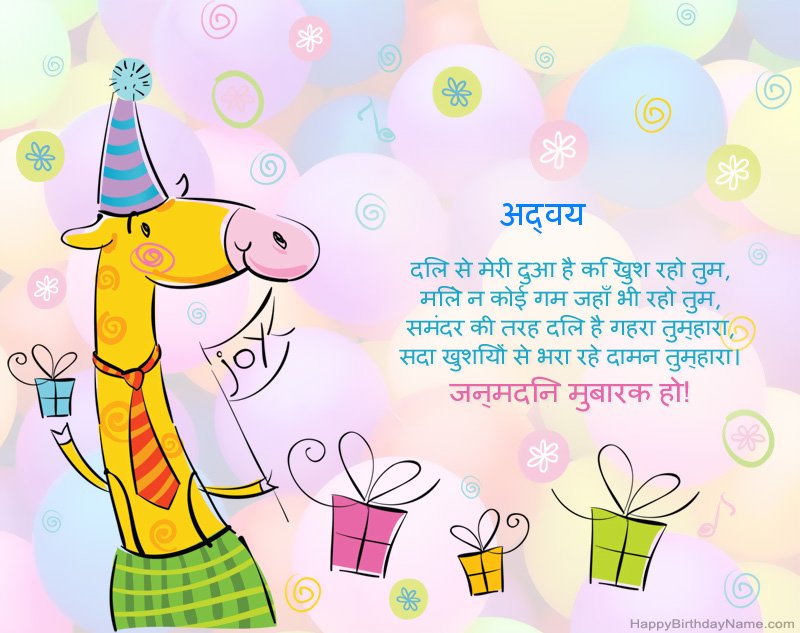 अद्वय
दिल से मेरी दुआ है कि खुश रहो तुम,
मिले न कोई गम जहाँ भी रहो तुम,
समंदर की तरह दिल है गहरा तुम्हारा,
सदा खुशियों से भरा रहे दामन तुम्हारा।
जन्मदिन मुबारक हो!
joy
HappyBirthdayName.com